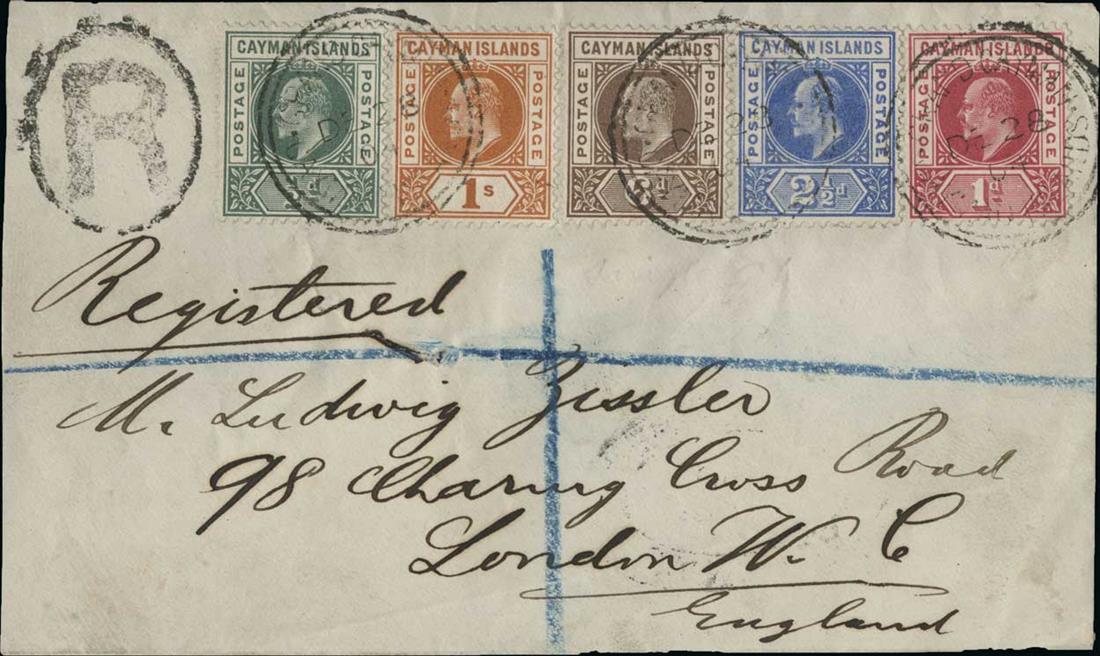 R
CAYMAN ISLANDS
POSTAGE POSTAGE
½d
CAYMAN ISLANDS
POSTAGE POSTAGE
1s
CAYMAN ISLANDS
POSTAGE POSTAGE
6d
CAYMAN ISLANDS
POSTAGE POSTAGE
2½d
CAYMAN ISLANDS
POSTAGE POSTAGE
1d
DE 28
Registered
Mr. Ludwig Zissler
98 Charing Cross Road
London W. C
England